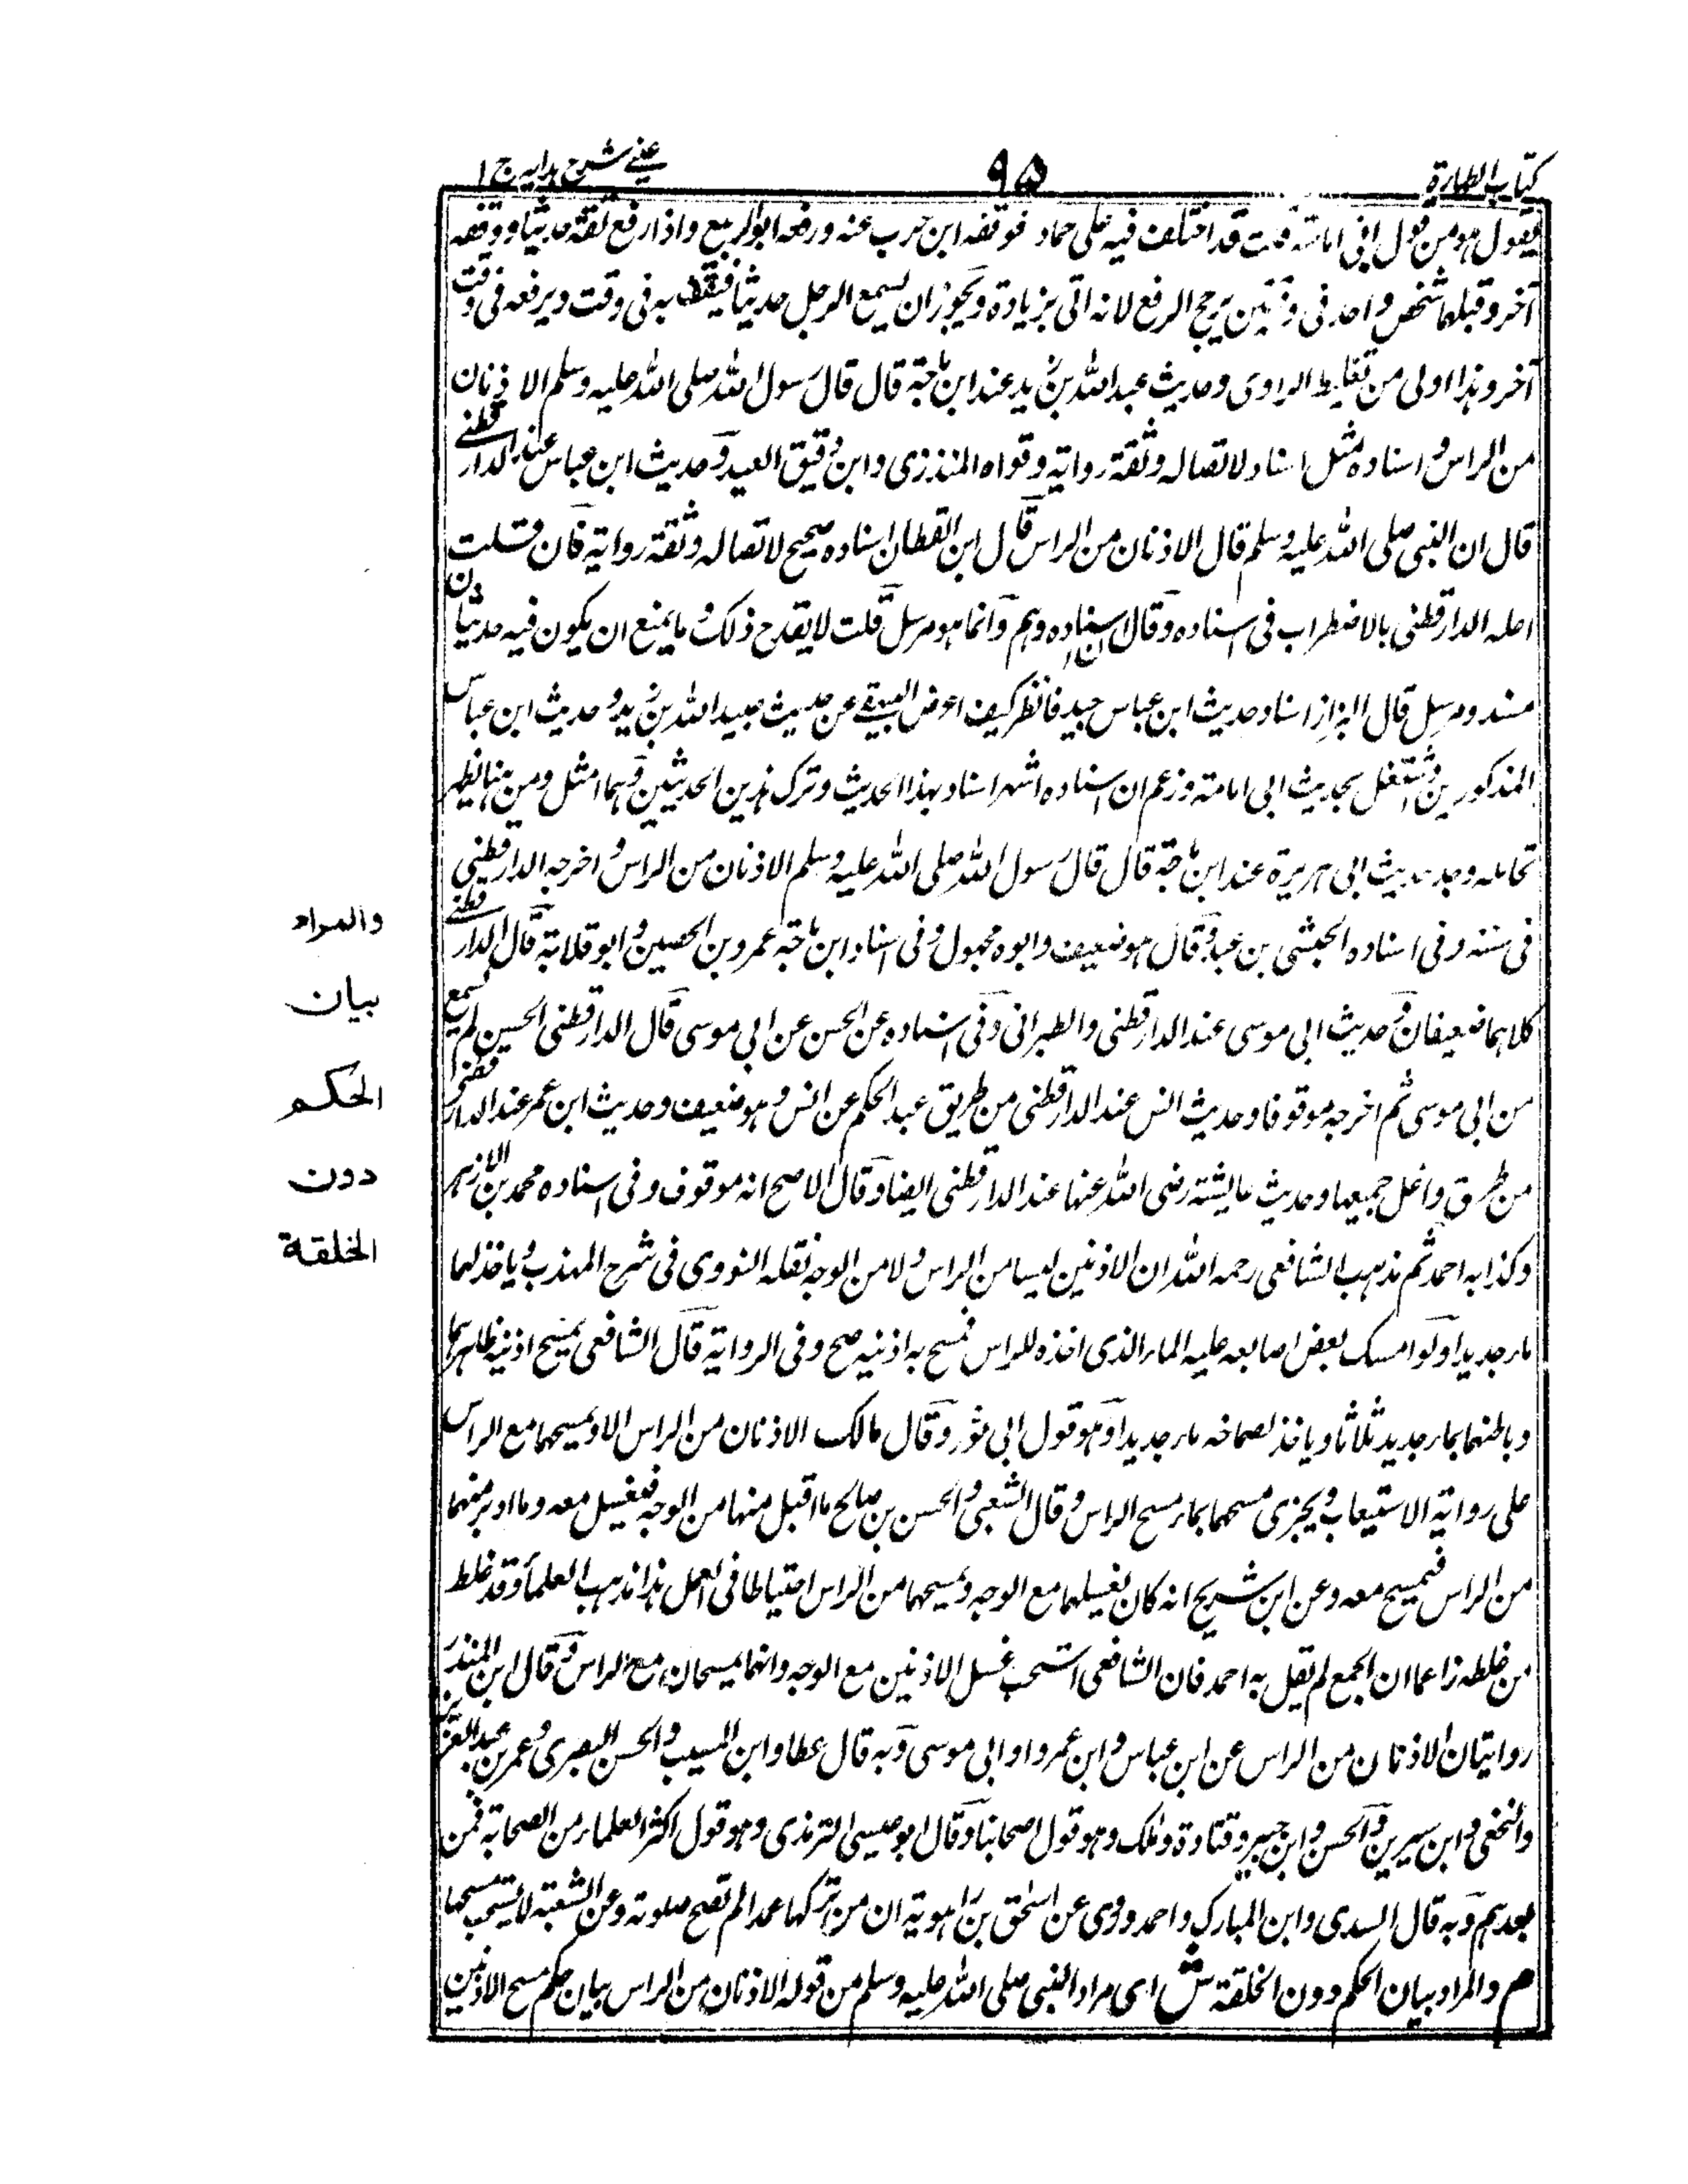 كتاب الطهارة
٩٥
عينى شرح هدايه ج ١
يقول هو من قول ابى امامة قلت قد اختلف فيه على حماد فوقفه ابن حرب عنه ورفعه ابو الربيع واذا رفع ثقة حديثا ووقفه
آخر وقبلهما شخص واحد فى وقتين يرجح الرفع لانه اتى بزيادة ويجوز ان يسمع الرجل حديثا فيقف به فى وقت ويرفعه فى وقت
آخر وهذا اولى من تغليط الراوى وحديث عبد الله بن زيد عند ابن ماجة قال قال رسول الله صلى الله عليه وسلم الاذنان
من الراس واسناده مثل اسناد لاتصاله وثقة رواية وقواه المنذرى وابن دقيق العيد وحديث ابن عباس عند الدارقطنے
قال ان النبى صلى الله عليه وسلم قال الاذنان من الراس قال ابن القطان اسناده صحيح لاتصاله وثقة رواية فان قلت
اعله الدارقطنى بالاضطراب فى اسناده وقال ان اسناده وهم وانما هو مرسل قلت لا يقدح ذلك وما يمنع ان يكون فيه حديثان
مسند ومرسل قال البزار اسناد حديث ابن عباس جيد فانظر كيف اعرض البيهقے عن حديث عبيد الله بن زيد وحديث ابن عباس
المذكورين واشتغل بحديث ابى امامة وزعم ان اسناده اشهر اسناد بهذا الحديث وترك هذين الحديثين وهما امثل ومن هنا يظهر
تحامله وجد حديث ابى هريرة عند ابن ماجة قال قال رسول الله صلى الله عليه وسلم الاذنان من الراس واخرجه الدارقطنى
فى سننه وفى اسناده الحبشى بن عبد وقال هو ضعيف وابوه مجهول وفى اسناد ابن ماجة عمرو بن الحصين وابو قلابة قال الدارقطنے
كلاهما ضعيفان وحديث ابى موسى عند الدارقطنى والطبرانى وفى اسناده عن الحسن عن ابى موسى قال الدارقطنى الحسين لم يسمع
من ابى موسى ثم اخرجه موقوفا وحديث انس عند الدارقطنى من طريق عبد الحكم عن انس وهو ضعيف وحديث ابن عمر عند الدارقطنى
من طرق واعل جميعها وحديث عايشة رضى الله عنها عند الدارقطنى ايضا وقال الاصح انه موقوف وفى اسناده محمد بن الازهر
وكذا به احمد ثم مذهب الشافعى رحمه الله ان الاذنين ليسا من الراس ولا من الوجه نقله النووى فى شرح المهذب وياخذ لهما
ماء جديدا ولو امسك بعض اصابعه عليه الماء الذى اخذه للراس فمسح به اذنيه صح وفى الرواية قال الشافعى يمسح اذنيه ظاهرهما
وباطنهما بماء جديد ثلاثا وياخذ لصماخه ماء جديدا وهو قول ابى ثور وقال مالك الاذنان من الراس الا ويمسحهما مع الراس
على رواية الاستيعاب ويجزى مسحهما بماء مسح الراس وقال الشعبى والحسن بن صالح ما اقبل منهما من الوجه فيغسل معه وما ادبر منهما
من الراس فيمسح معه وعن ابن شريح انه كان يغسلهما مع الوجه ويمسحهما من الراس احتياطا فى العمل هذا مذهب العلماء وقد غلط
من غلطه زاعما ان الجمع لم يقل به احمد فان الشافعى استحب غسل الاذنين مع الوجه وانهما يمسحان مع الراس وقال ابن المنذر
روايتان الاذنان من الراس عن ابن عباس وابن عمرو او ابى موسى وبه قال عطا وابن المسيب والحسن البصرى وعمر بن عبد العزيز
والنخعى وابن سيرين والحسن وابن جبير وقتادة ومالك وهو قول اصحابنا وقال ابو عيسى الترمذى وهو قول اكثر العلماء من الصحابة فمن
بعدهم وبه قال السدى وابن المبارك واحمد وروى عن اسحق بن راهوية ان من تركها عمدا لم تصح صلوته وعن الشعبة لا يستحب مسحها
م والمراد بيان الحكم دون الخلقة ش اى مراد النبى صلى الله عليه وسلم من قوله الاذنان من الراس بيان حكم مسح الاذنين
والمراد
بيان
الحكم
دون
الخلقة